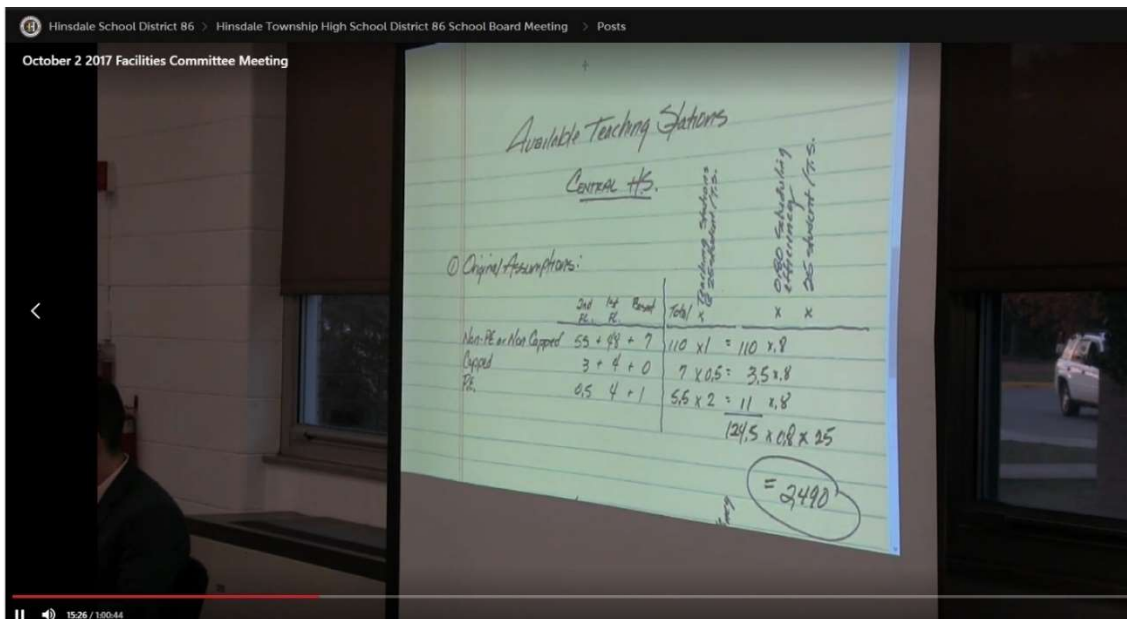 Hinsdale School District 86 > Hinsdale Township High School District 86 School Board Meeting > Posts
October 2 2017 Facilities Committee Meeting
Available Teaching Stations
CENTRAL H.S.
Teaching Stations
@ 25 student/T.S.
0.80 scheduling
efficiency
25 student/T.S.
① Original Assumptions:
2nd Fl. 1st Fl. Total x x x
Non-PE or Non Capped 55 + 48 + 7 110 x 1 = 110 x .8
Capped 3 + 4 + 0 7 x 0.5 = 3.5 x .8
P.E. 0.5 4 + 1 5.5 x 2 = 11 x .8
124.5 x 0.8 x 25
= 2,490
15:26 / 1:00:44